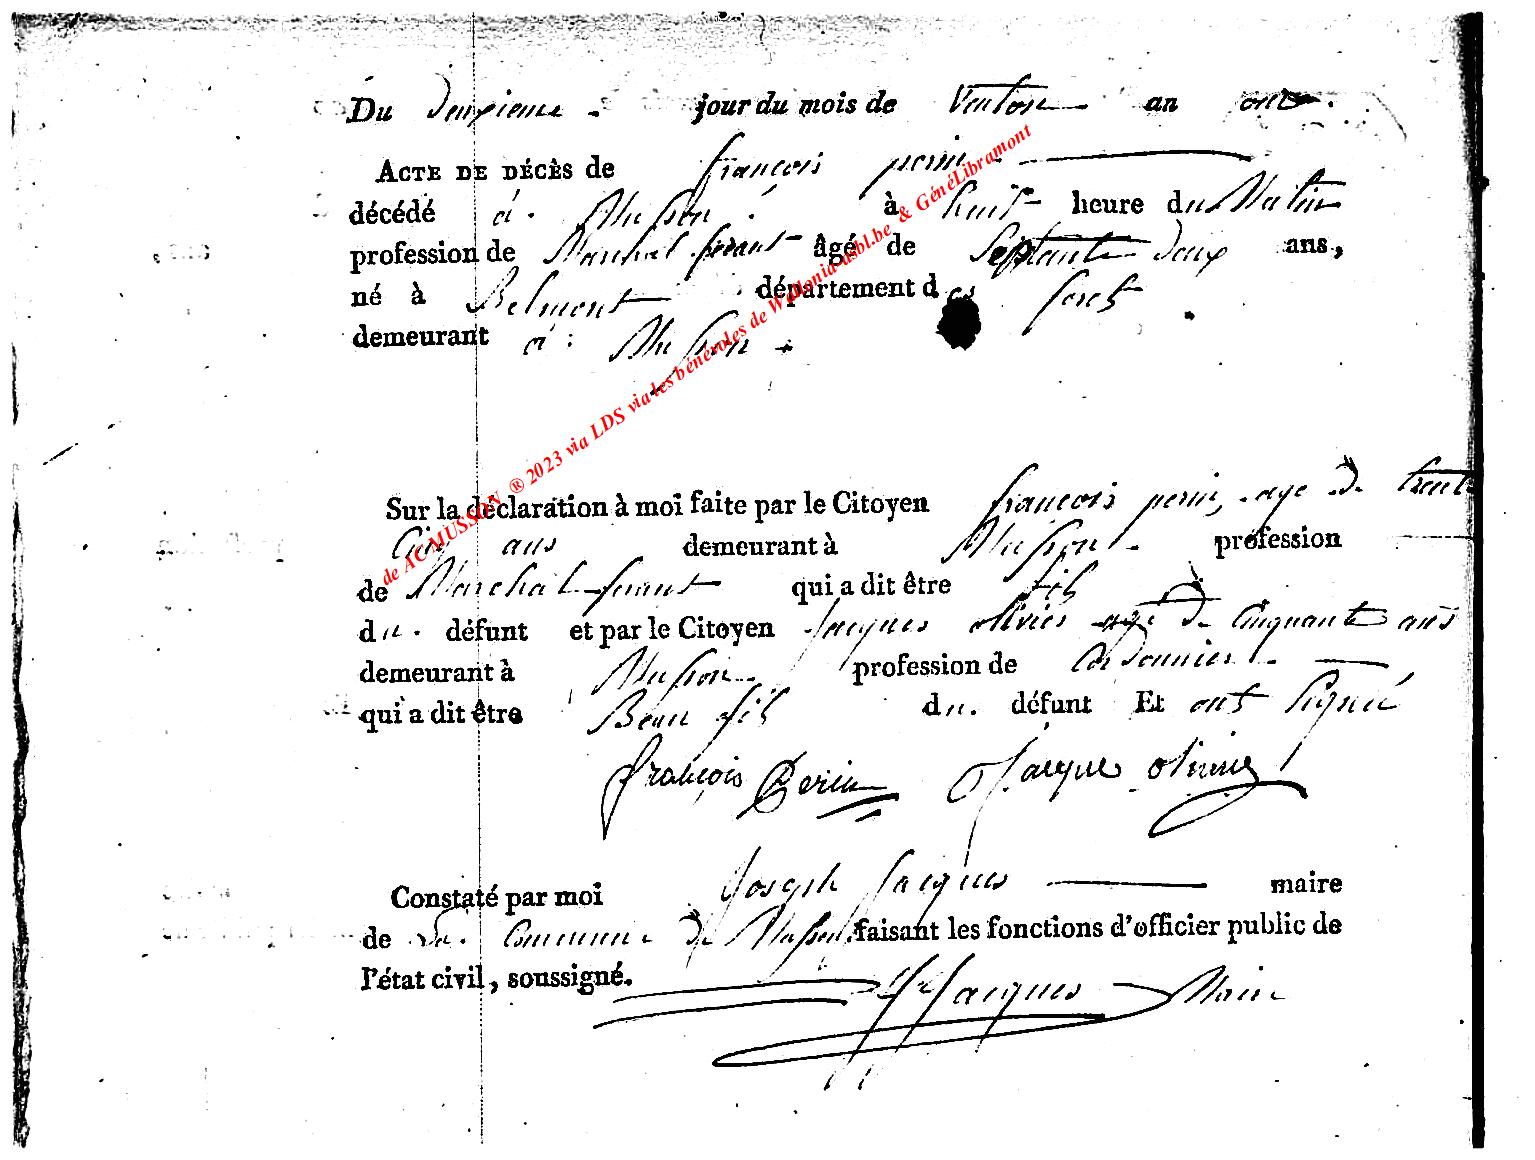 Du deuxieme jour du mois de Ventose an onze.
ACTE DE DÉCÈS de françois perin
décédé á Musson à huit heure du Matin
profession de Marchal ferant âgé de Septante deux ans,
né à Belmont département des forets
demeurant á Musson
Sur la déclaration à moi faite par le Citoyen françois perin, age de trente
Cinq ans demeurant à Musson profession
de Marchal ferant qui a dit être fils
du défunt et par le Citoyen Jacques olivier age de Cinquante ans
demeurant à Musson profession de Cordonnier
qui a dit être Beau fils du défunt Et ont signé
françois Perin Jacque olivier
Constaté par moi Joseph Jacques maire
de La Commune de Musson faisant les fonctions d'officier public de
l'état civil, soussigné.
Jacques Maire
de AC MUSSON ® 2023 via LDS via les bénévoles de Wallonia-asbl.be & GénéLibramont